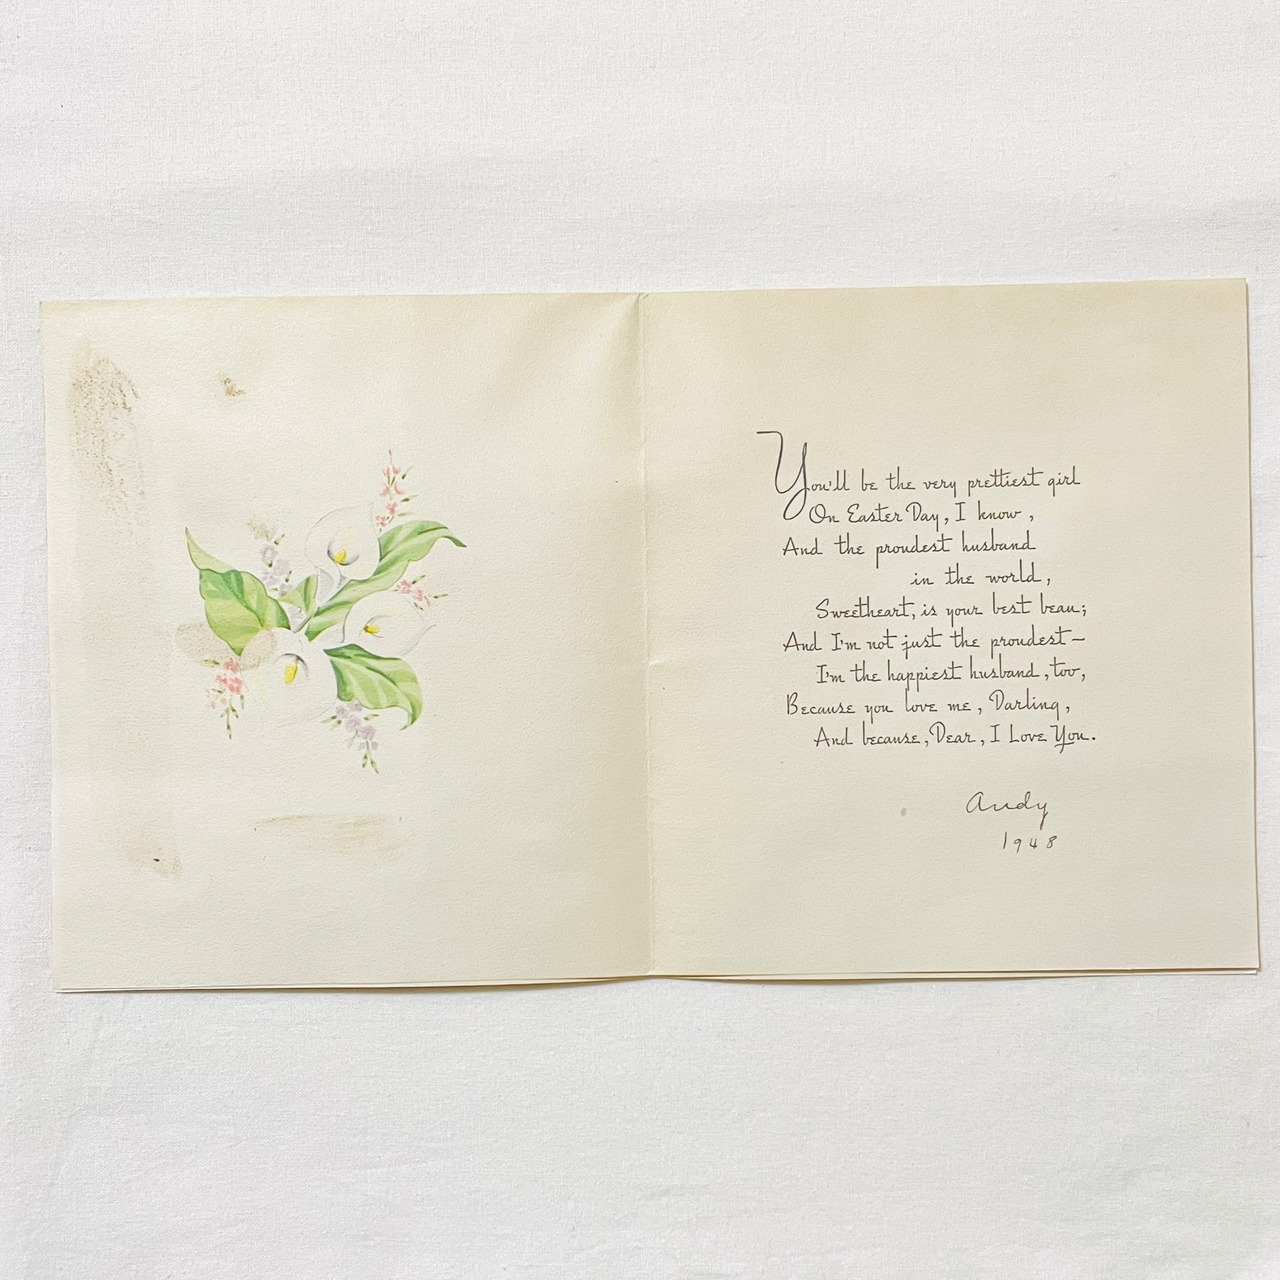 You'll be the very prettiest girl
On Easter Day, I know,
And the proudest husband
in the world,
Sweetheart, is your best beau;
And I'm not just the proudest—
I'm the happiest husband, too,
Because you love me, Darling,
And because, Dear, I Love You.
Andy
1948